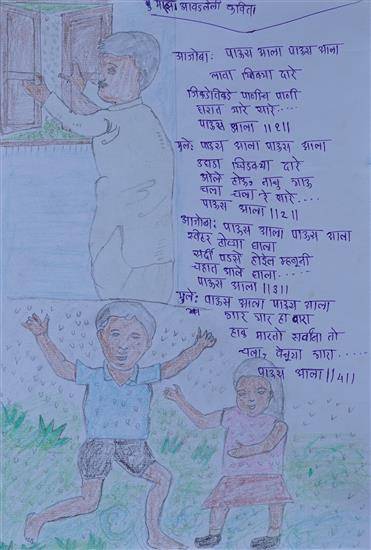 माझी आवडलेली कविता
आजोबा: पाऊस आला पाऊस आला
लावा खिडक्या दारे
जिकडेतिकडे पाणीच पाणी
घरात सारे....
पाऊस आला ||१||
मुले: पाऊस आला पाऊस आला
उघडा खिडक्या दारे
ओले होऊ, नाचू गाऊ
चला चला रे सारे....
पाऊस आला ||2||
आजोबा: पाऊस आला पाऊस आला
स्वेटर टोप्या घाला
सर्दी पडसे होईल म्हणूनी
चहात आले घाला....
पाऊस आला ||3||
मुले: पाऊस आला पाऊस आला
गार गार हा वारा
हाक मारतो सर्वांना तो
चला, वेचूया गारा.....
पाऊस आला ||4||